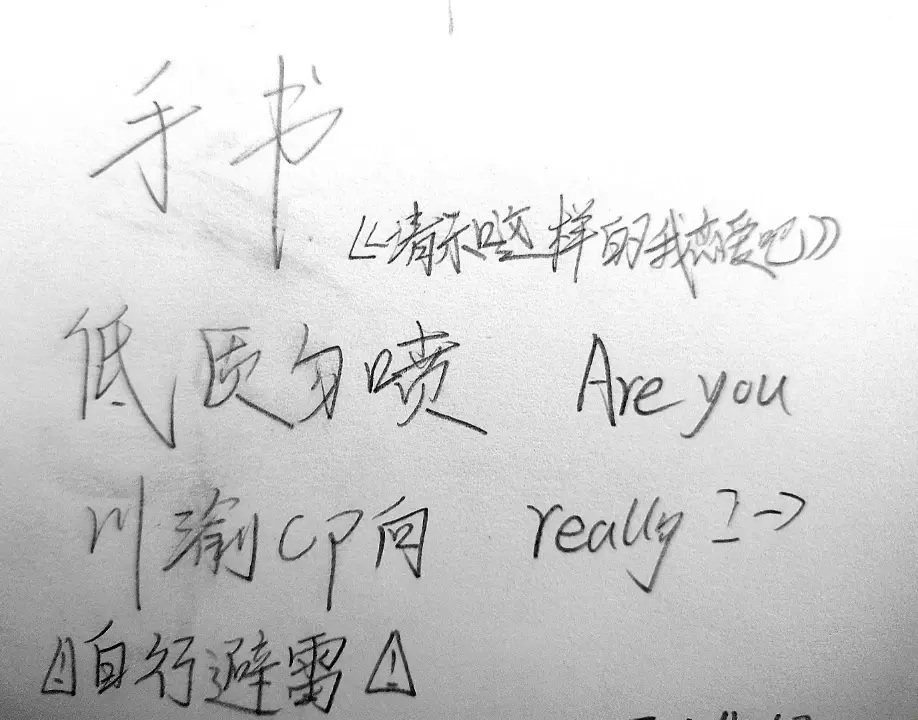 手书
《请和这样的我恋爱吧》
低质勿喷 Are you
川渝CP向 really ?→
⚠自行避雷⚠